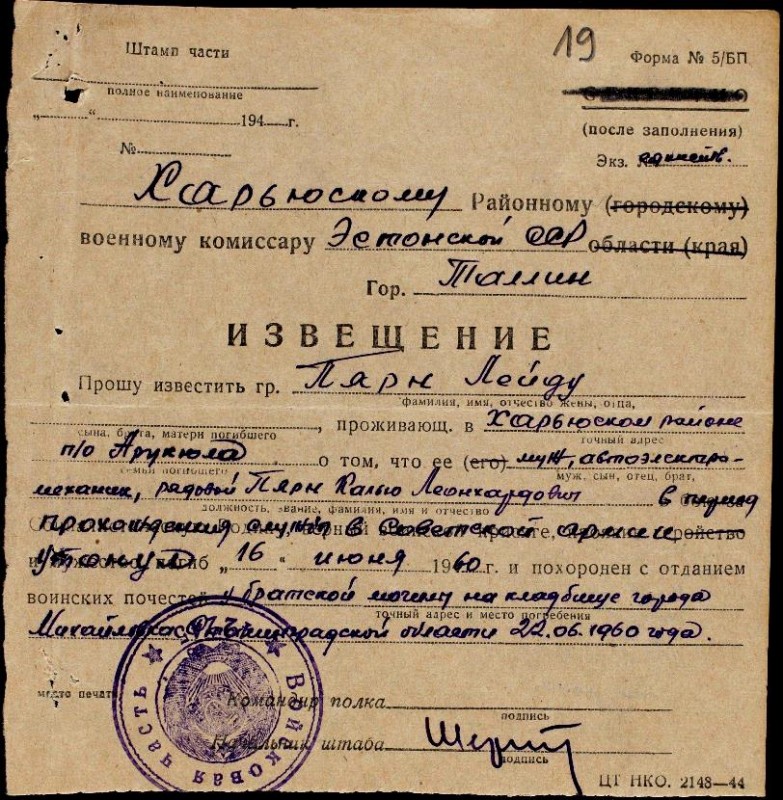 19
Штамп части
Форма № 5/БП
полное наименование
„ “ 194 г.
(после заполнения)
№
Экз. № единств.
Харьюскому Районному (городскому)
военному комиссару Эстонской ССР области (края)
Гор. Таллин
ИЗВЕЩЕНИЕ
Прошу известить гр. Пярн Лейду
фамилия, имя, отчество жены, отца,
, проживающ. в Харьюском районе
сына, брата, матери погибшего
точный адрес
п/о Арукюла о том, что ее (его) муж, автоэлектро-
семьи погибшего
муж, сын, отец, брат,
механик, рядовой Пярн Калью Леонхардович в период
должность, звание, фамилия, имя и отчество
прохождения службы в Советской армии
утонул
погиб „16“ июня 1960 г. и похоронен с отданием
воинских почестей у братской могилы на кладбище города
точный адрес и место погребения
области 22.06.1960 года.
место печати
Командир полка
подпись
Начальник штаба
подпись
Войсковая часть
ЦТ НКО. 2148—44